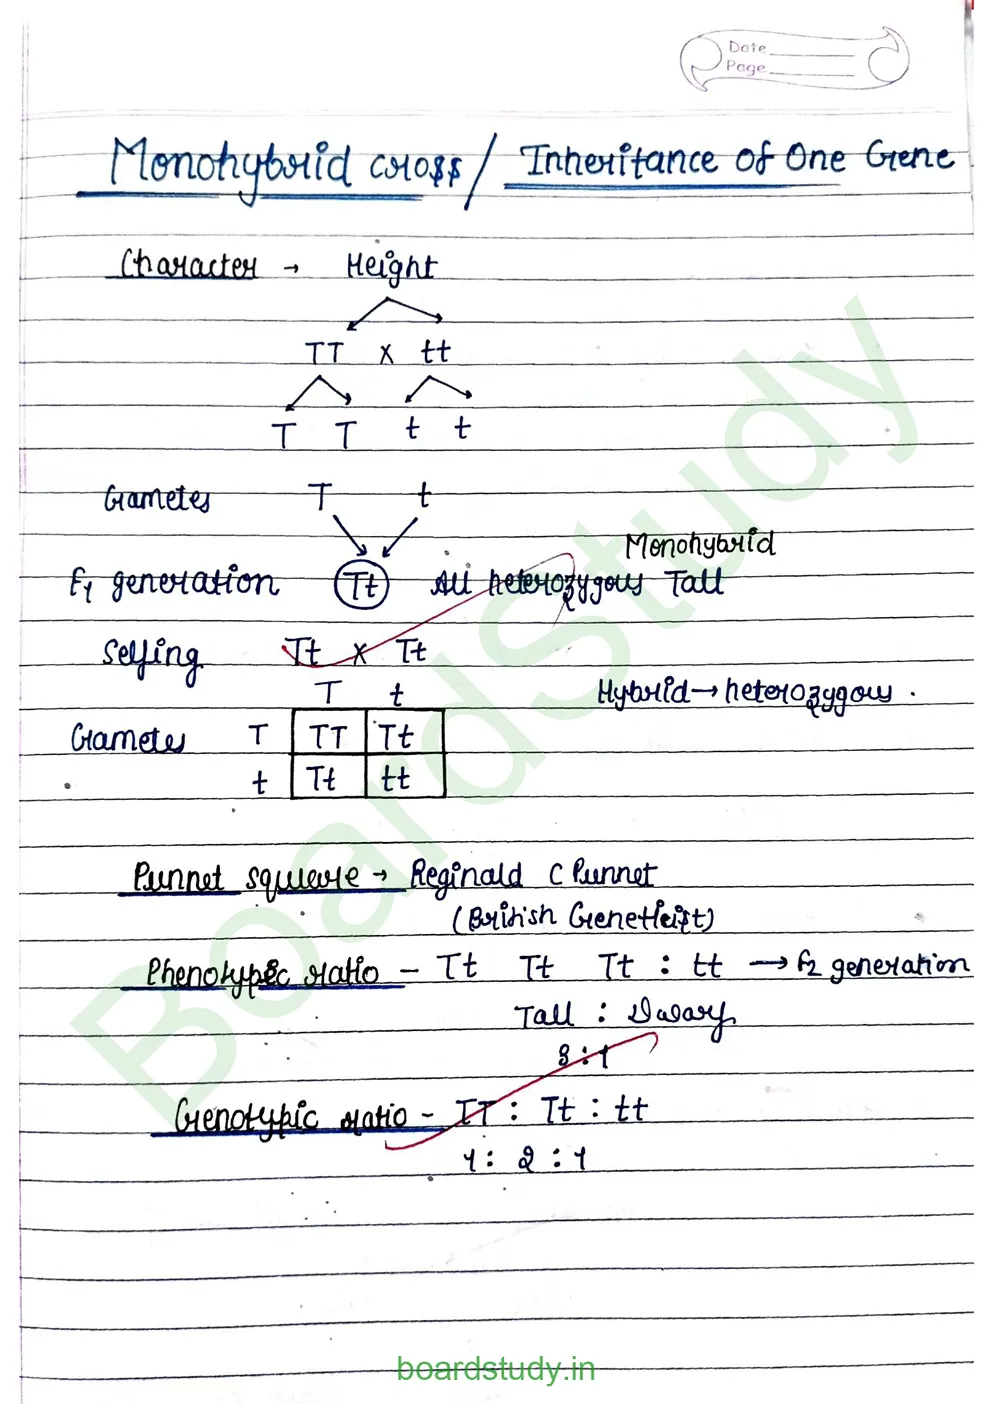 Date
Page
Monohybrid cross / Inheritance of One Gene
Character → Height
TT x tt
T T t t
Gametes T t
Monohybrid
F1 generation Tt All heterozygous Tall
Selfing Tt x Tt
T t
Hybrid → heterozygous .
Gametes T TT Tt
t Tt tt
Punnet square → Reginald C Punnet
(British Geneticist)
Phenotypic ratio - Tt Tt Tt : tt → F2 generation
Tall : Dwarf
3:1
Genotypic ratio - TT : Tt : tt
1 : 2 : 1
BoardStudy
boardstudy.in